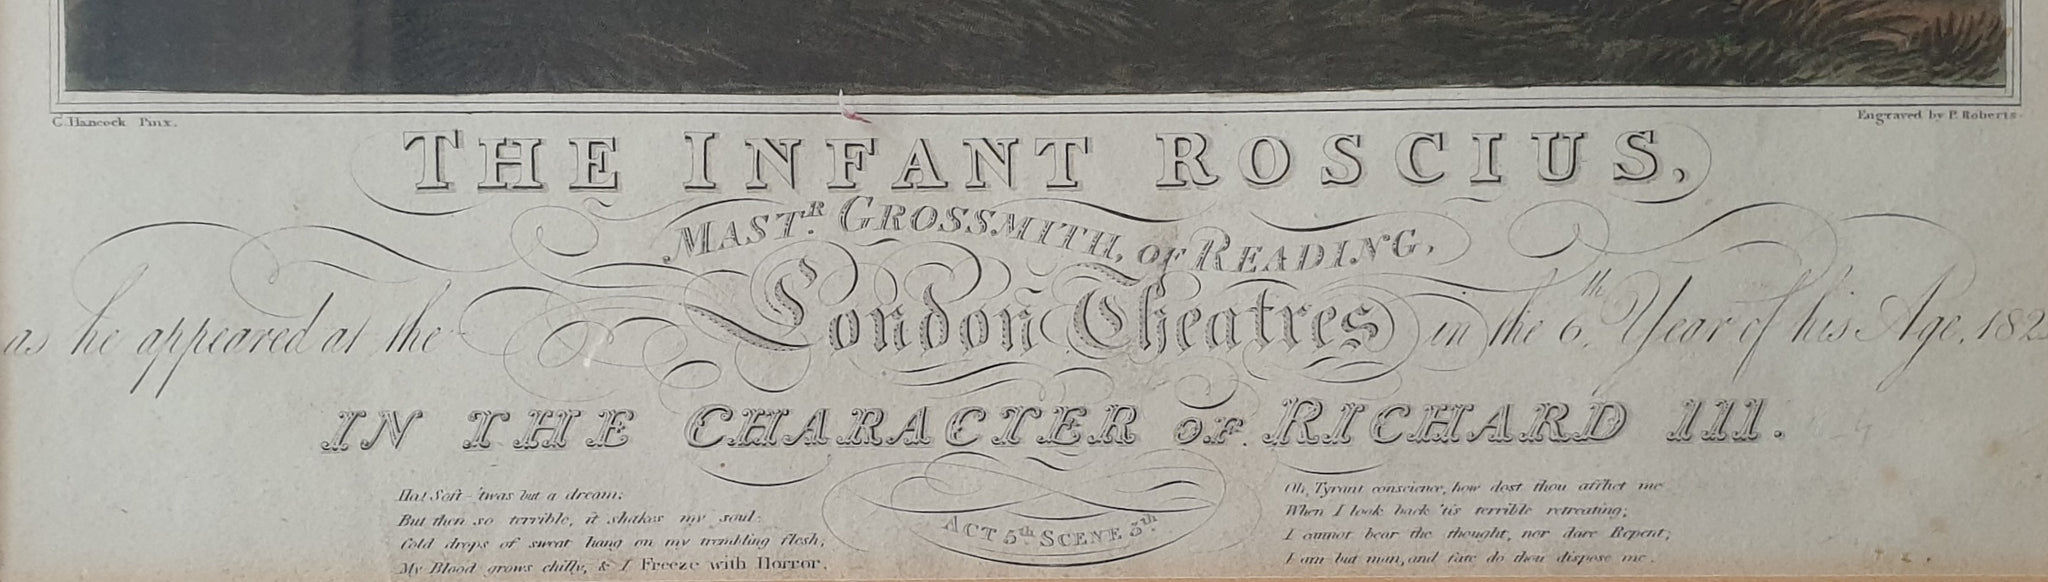 C. Hancock Pinx.
Engraved by P. Roberts.
THE INFANT ROSCIUS,
MAST.R GROSSMITH, OF READING,
as he appeared at the London Theatres in the 6th Year of his Age, 182
IN THE CHARACTER OF RICHARD III.
Ha! Soft 'twas but a dream;
But then so terrible, it shakes my soul.
Cold drops of sweat hang on my trembling flesh;
My Blood grows chilly, & I Freeze with Horror.
ACT 5th SCENE 3th.
Oh, Tyrant conscience, how dost thou afflict me
When I look back 'tis terrible retreating;
I cannot bear the thought, nor dare Repent;
I am but man, and fate do thou dispose me.